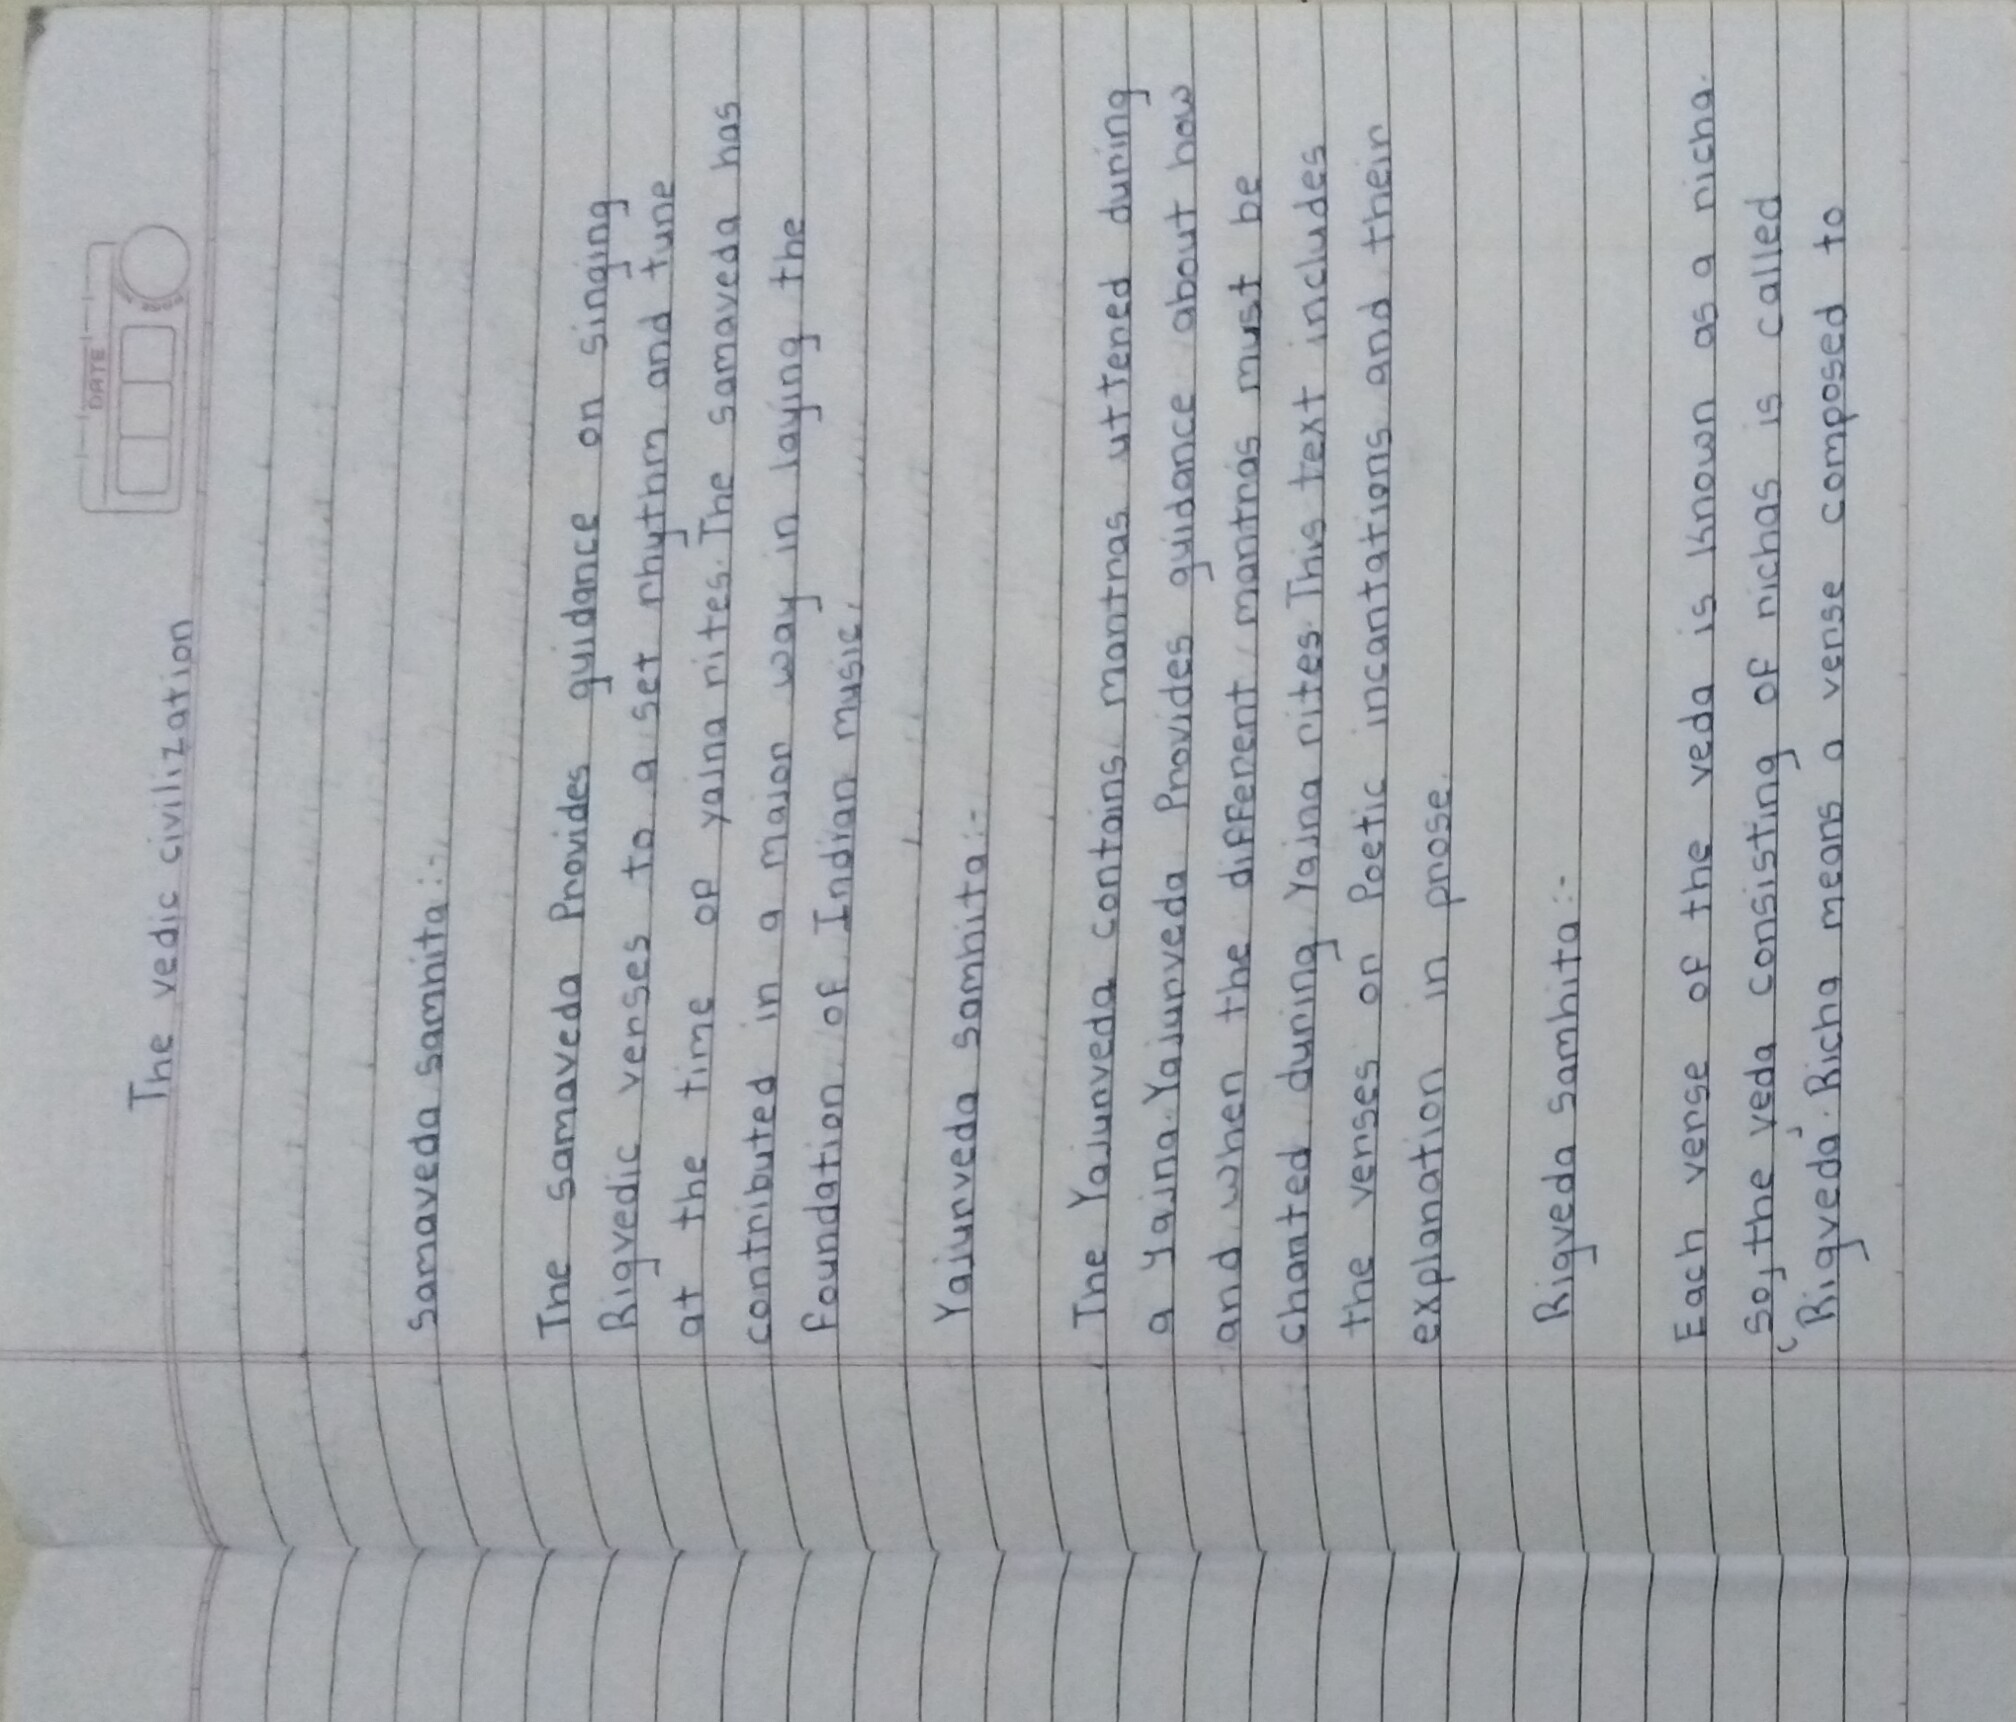 DATE
The vedic civilization
Samaveda samhita:-
The samaveda Provides guidance on singing
Rigvedic verses to a set rhythm and tune
at the time or yajna rites. The samaveda has
contributed in a major way in laying the
foundation of Indian music.
Yajurveda samhita:-
The Yajurveda contains mantras uttered during
a Yajna. Yajurveda Provides guidance about how
and when the different mantras must be
chanted during Yajna rites. This text includes
the verses or Poetic incantations and their
explanation in prose.
Rigveda Samhita:-
Each verse of the veda is known as a richa.
So, the veda consisting of richas is called
Rigveda. Richa means a verse composed to